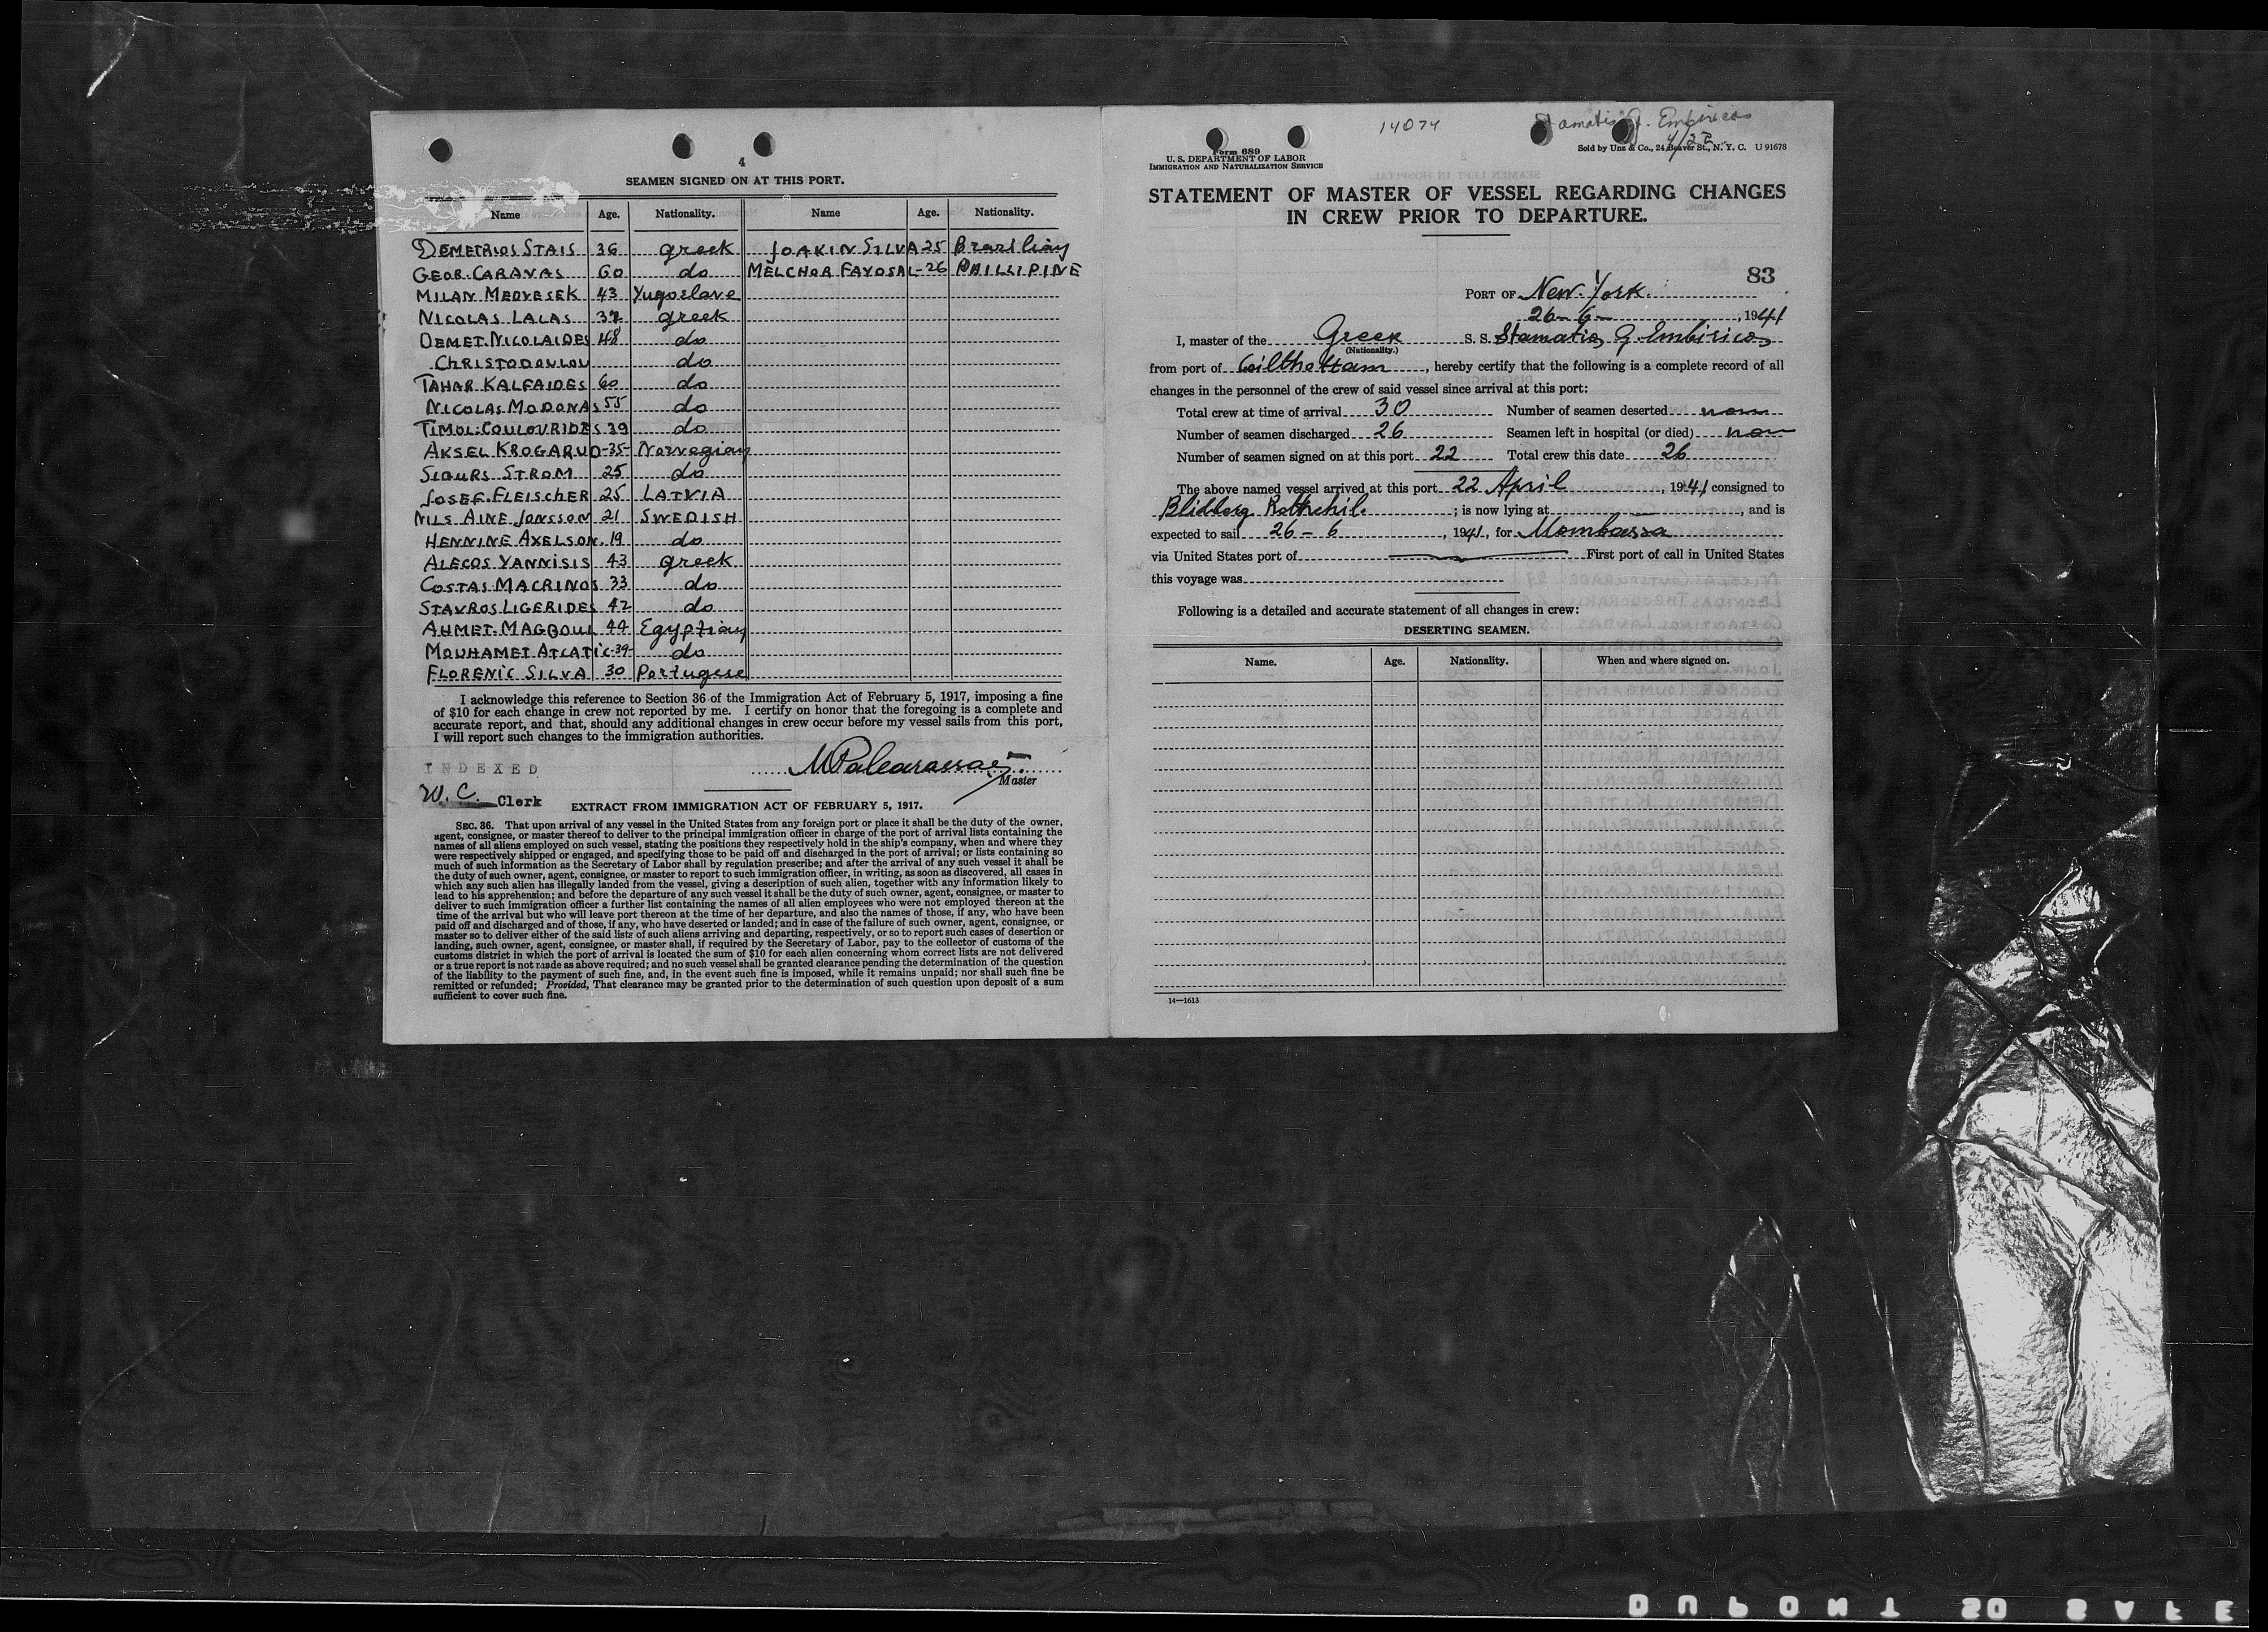 4
SEAMEN SIGNED ON AT THIS PORT.
Name Age. Nationality. Name Age. Nationality.
DEMETRIOS STAIS 36 greek JOAKIN SILVA 25 Brazilian
GEOR. CARAVAS 60 do MELCHOR FAYOSAL-26 PHILLIPINE
MILAN MEDVESEK 43 Yugoslave
NICOLAS LALAS 37 greek
DEMET. NICOLAIDES 48 do
CHRISTODOULOU do
TAHAR KALFAIDES 60 do
NICOLAS MODONAS 55 do
TIMOL: COULOURIDES 39 do
AKSEL KROGARUD -35- Norvegian
SIGURS STROM 25 do
JOSEF. FLEISCHER 25 LATVIA
NILS AINE JONSSON 21 SWEDISH
HENNINE AXELSON. 19 do
ALECOS YANNISIS 43 greek
COSTAS MACRINOS 33 do
STAVROS LIGERIDES 42 do
AHMET. MAGBOUL 44 Egyptian
MOUHAMET ATLATIC -39- do
FLORENIC SILVA 30 Portugese
I acknowledge this reference to Section 36 of the Immigration Act of February 5, 1917, imposing a fine
of $10 for each change in crew not reported by me. I certify on honor that the foregoing is a complete and
accurate report, and that, should any additional changes in crew occur before my vessel sails from this port,
I will report such changes to the immigration authorities.
INDEXED
Master
W. C. Clerk
EXTRACT FROM IMMIGRATION ACT OF FEBRUARY 5, 1917.
SEC. 36. That upon arrival of any vessel in the United States from any foreign port or place it shall be the duty of the owner,
agent, consignee, or master thereof to deliver to the principal immigration officer in charge of the port of arrival lists containing the
names of all aliens employed on such vessel, stating the positions they respectively hold in the ship's company, when and where they
were respectively shipped or engaged, and specifying those to be paid off and discharged in the port of arrival; or lists containing so
much of such information as the Secretary of Labor shall by regulation prescribe; and after the arrival of any such vessel it shall be
the duty of such owner, agent, consignee, or master to report to such immigration officer, in writing, as soon as discovered, all cases in
which any such alien has illegally landed from the vessel, giving a description of such alien, together with any information likely to
lead to his apprehension; and before the departure of any such vessel it shall be the duty of such owner, agent, consignee, or master to
deliver to such immigration officer a further list containing the names of all alien employees who were not employed thereon at the
time of the arrival but who will leave port thereon at the time of her departure, and also the names of those, if any, who have been
paid off and discharged and of those, if any, who have deserted or landed; and in case of the failure of such owner, agent, consignee, or
master so to deliver either of the said lists of such aliens arriving and departing, respectively, or so to report such cases of desertion or
landing, such owner, agent, consignee, or master shall, if required by the Secretary of Labor, pay to the collector of customs of the
customs district in which the port of arrival is located the sum of $10 for each alien concerning whom correct lists are not delivered
or a true report is not made as above required; and no such vessel shall be granted clearance pending the determination of the question
of the liability to the payment of such fine, and, in the event such fine is imposed, while it remains unpaid; nor shall such fine be
remitted or refunded; Provided, That clearance may be granted prior to the determination of such question upon deposit of a sum
sufficient to cover such fine.
14074 Stamatis G. Embiricos
4/22
Form 689
U. S. DEPARTMENT OF LABOR
IMMIGRATION AND NATURALIZATION SERVICE
Sold by Unz & Co., 24 Beaver St., N. Y. C. U 91678
STATEMENT OF MASTER OF VESSEL REGARDING CHANGES
IN CREW PRIOR TO DEPARTURE.
83
PORT OF New York.
26-6-, 1941
I, master of the Greek S. S. Stamatis G. Embiricos
(Nationality.)
from port of , hereby certify that the following is a complete record of all
changes in the personnel of the crew of said vessel since arrival at this port:
Total crew at time of arrival 30 Number of seamen deserted
Number of seamen discharged 26 Seamen left in hospital (or died)
Number of seamen signed on at this port 22 Total crew this date 26
The above named vessel arrived at this port 22 April, 1941 consigned to
Blidberg Rothchil. ; is now lying at , and is
expected to sail 26-6, 1941, for Mombassa
via United States port of First port of call in United States
this voyage was
Following is a detailed and accurate statement of all changes in crew:
DESERTING SEAMEN.
Name. Age. Nationality. When and where signed on.
14—1613